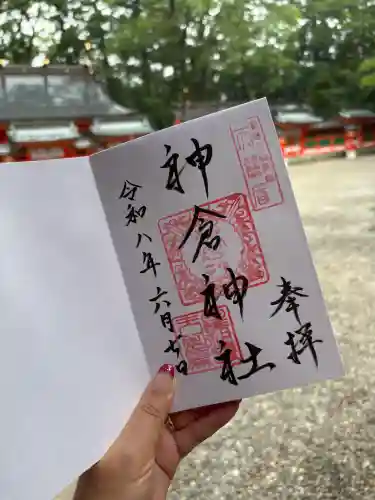 奉拝
神倉神社
令和八年六月七日